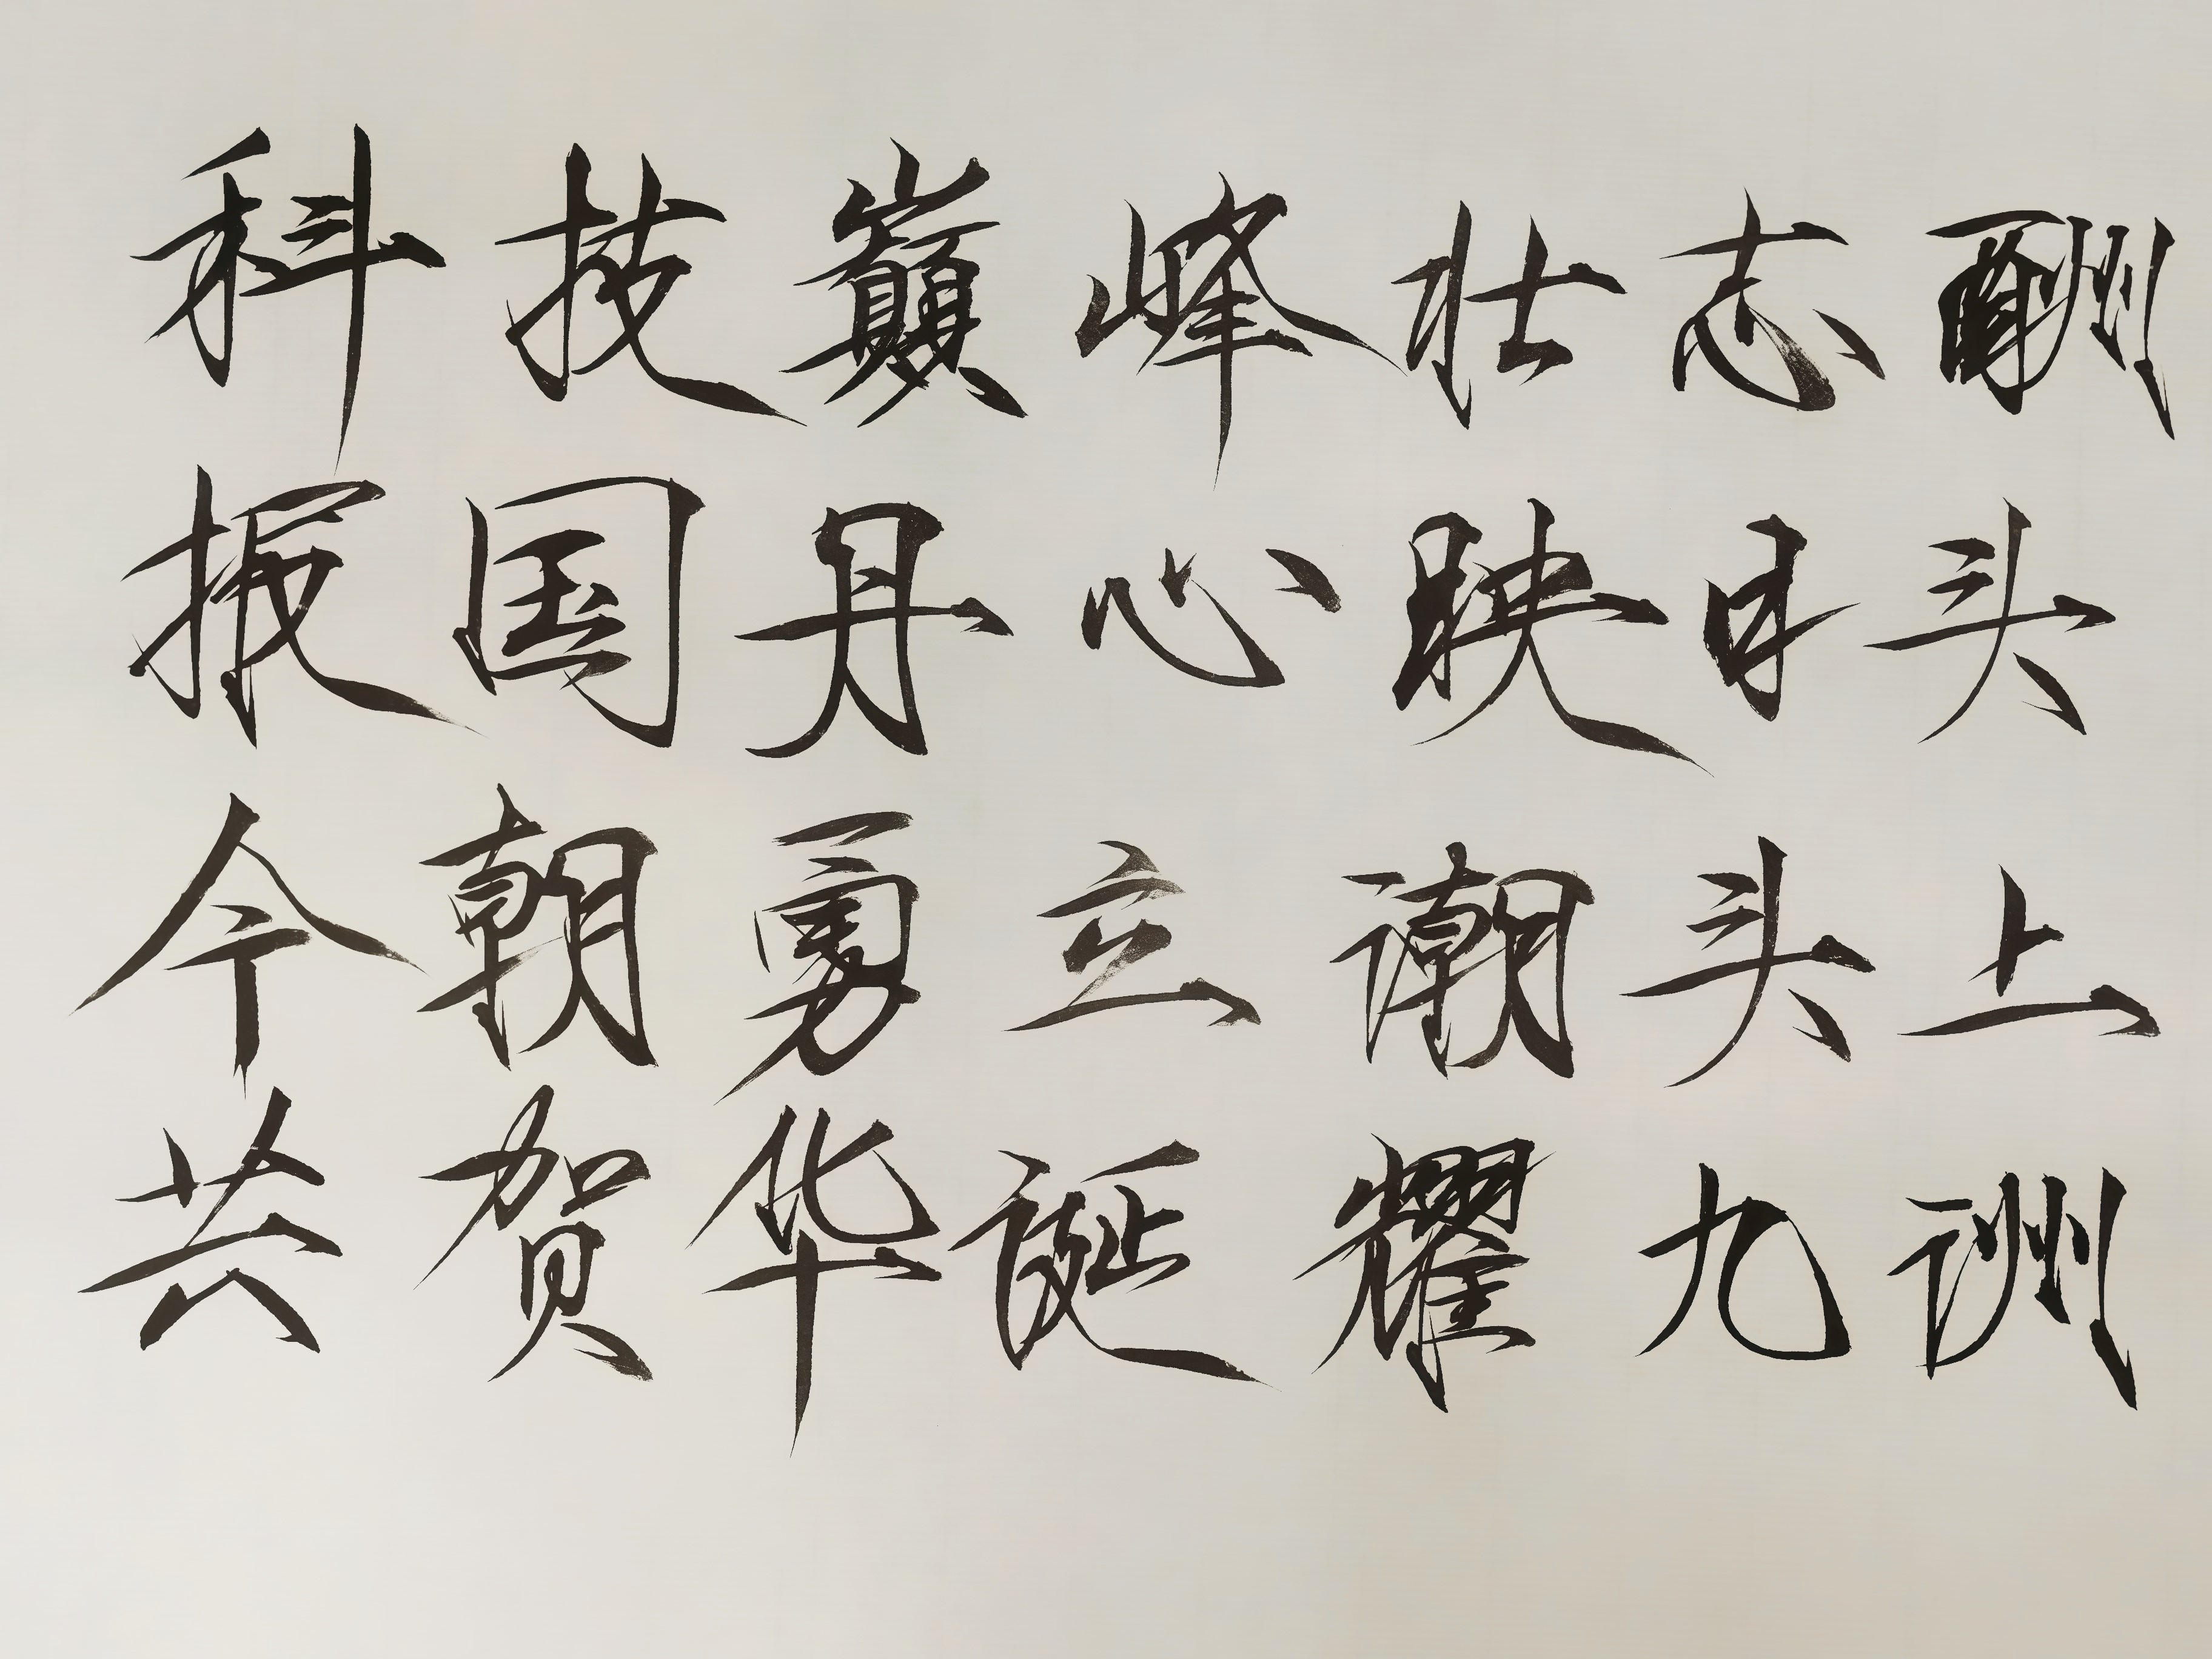 科技巅峰壮志酬
报国丹心映日头
今朝勇立潮头上
共贺华诞耀九洲